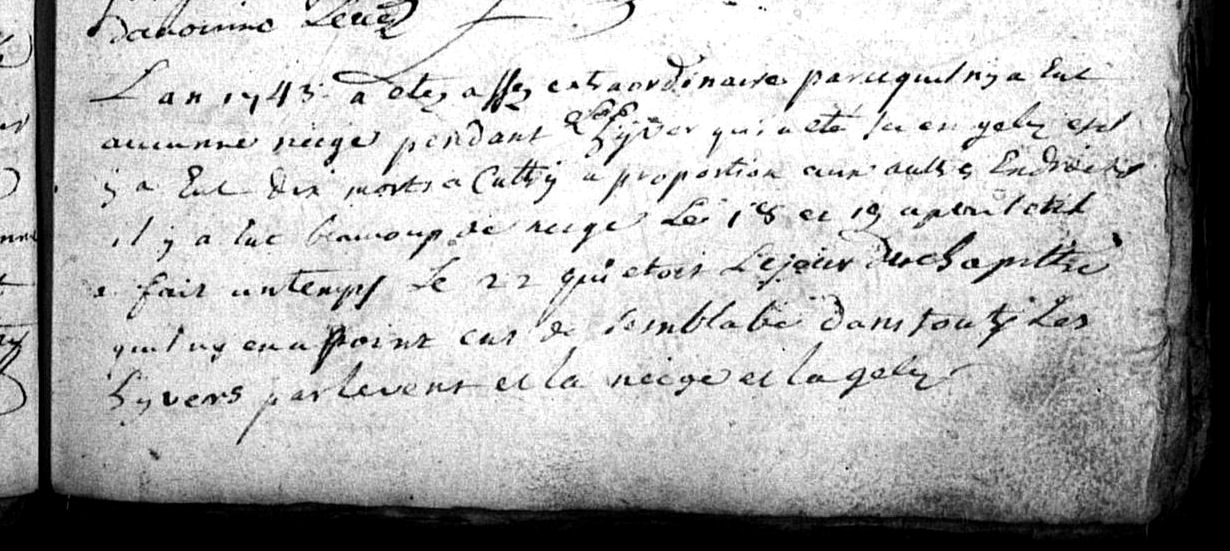 L an 1743 a etez assez extraordinaire parcequil ny a Eut
aucunne neige pendant L'hyver qui a eté en gelez et il
y a Eut dix morts a Cuthy a proportion aux aultres Endroits
il y a Eut beaucoup de neige Le 18 et 19 apvril et il
a fait un temps Le 22 qui etoit Le jour du chapittre
quil ny en a point eut de semblable dans touts Les
hyvers par levent et la neige et la gelez